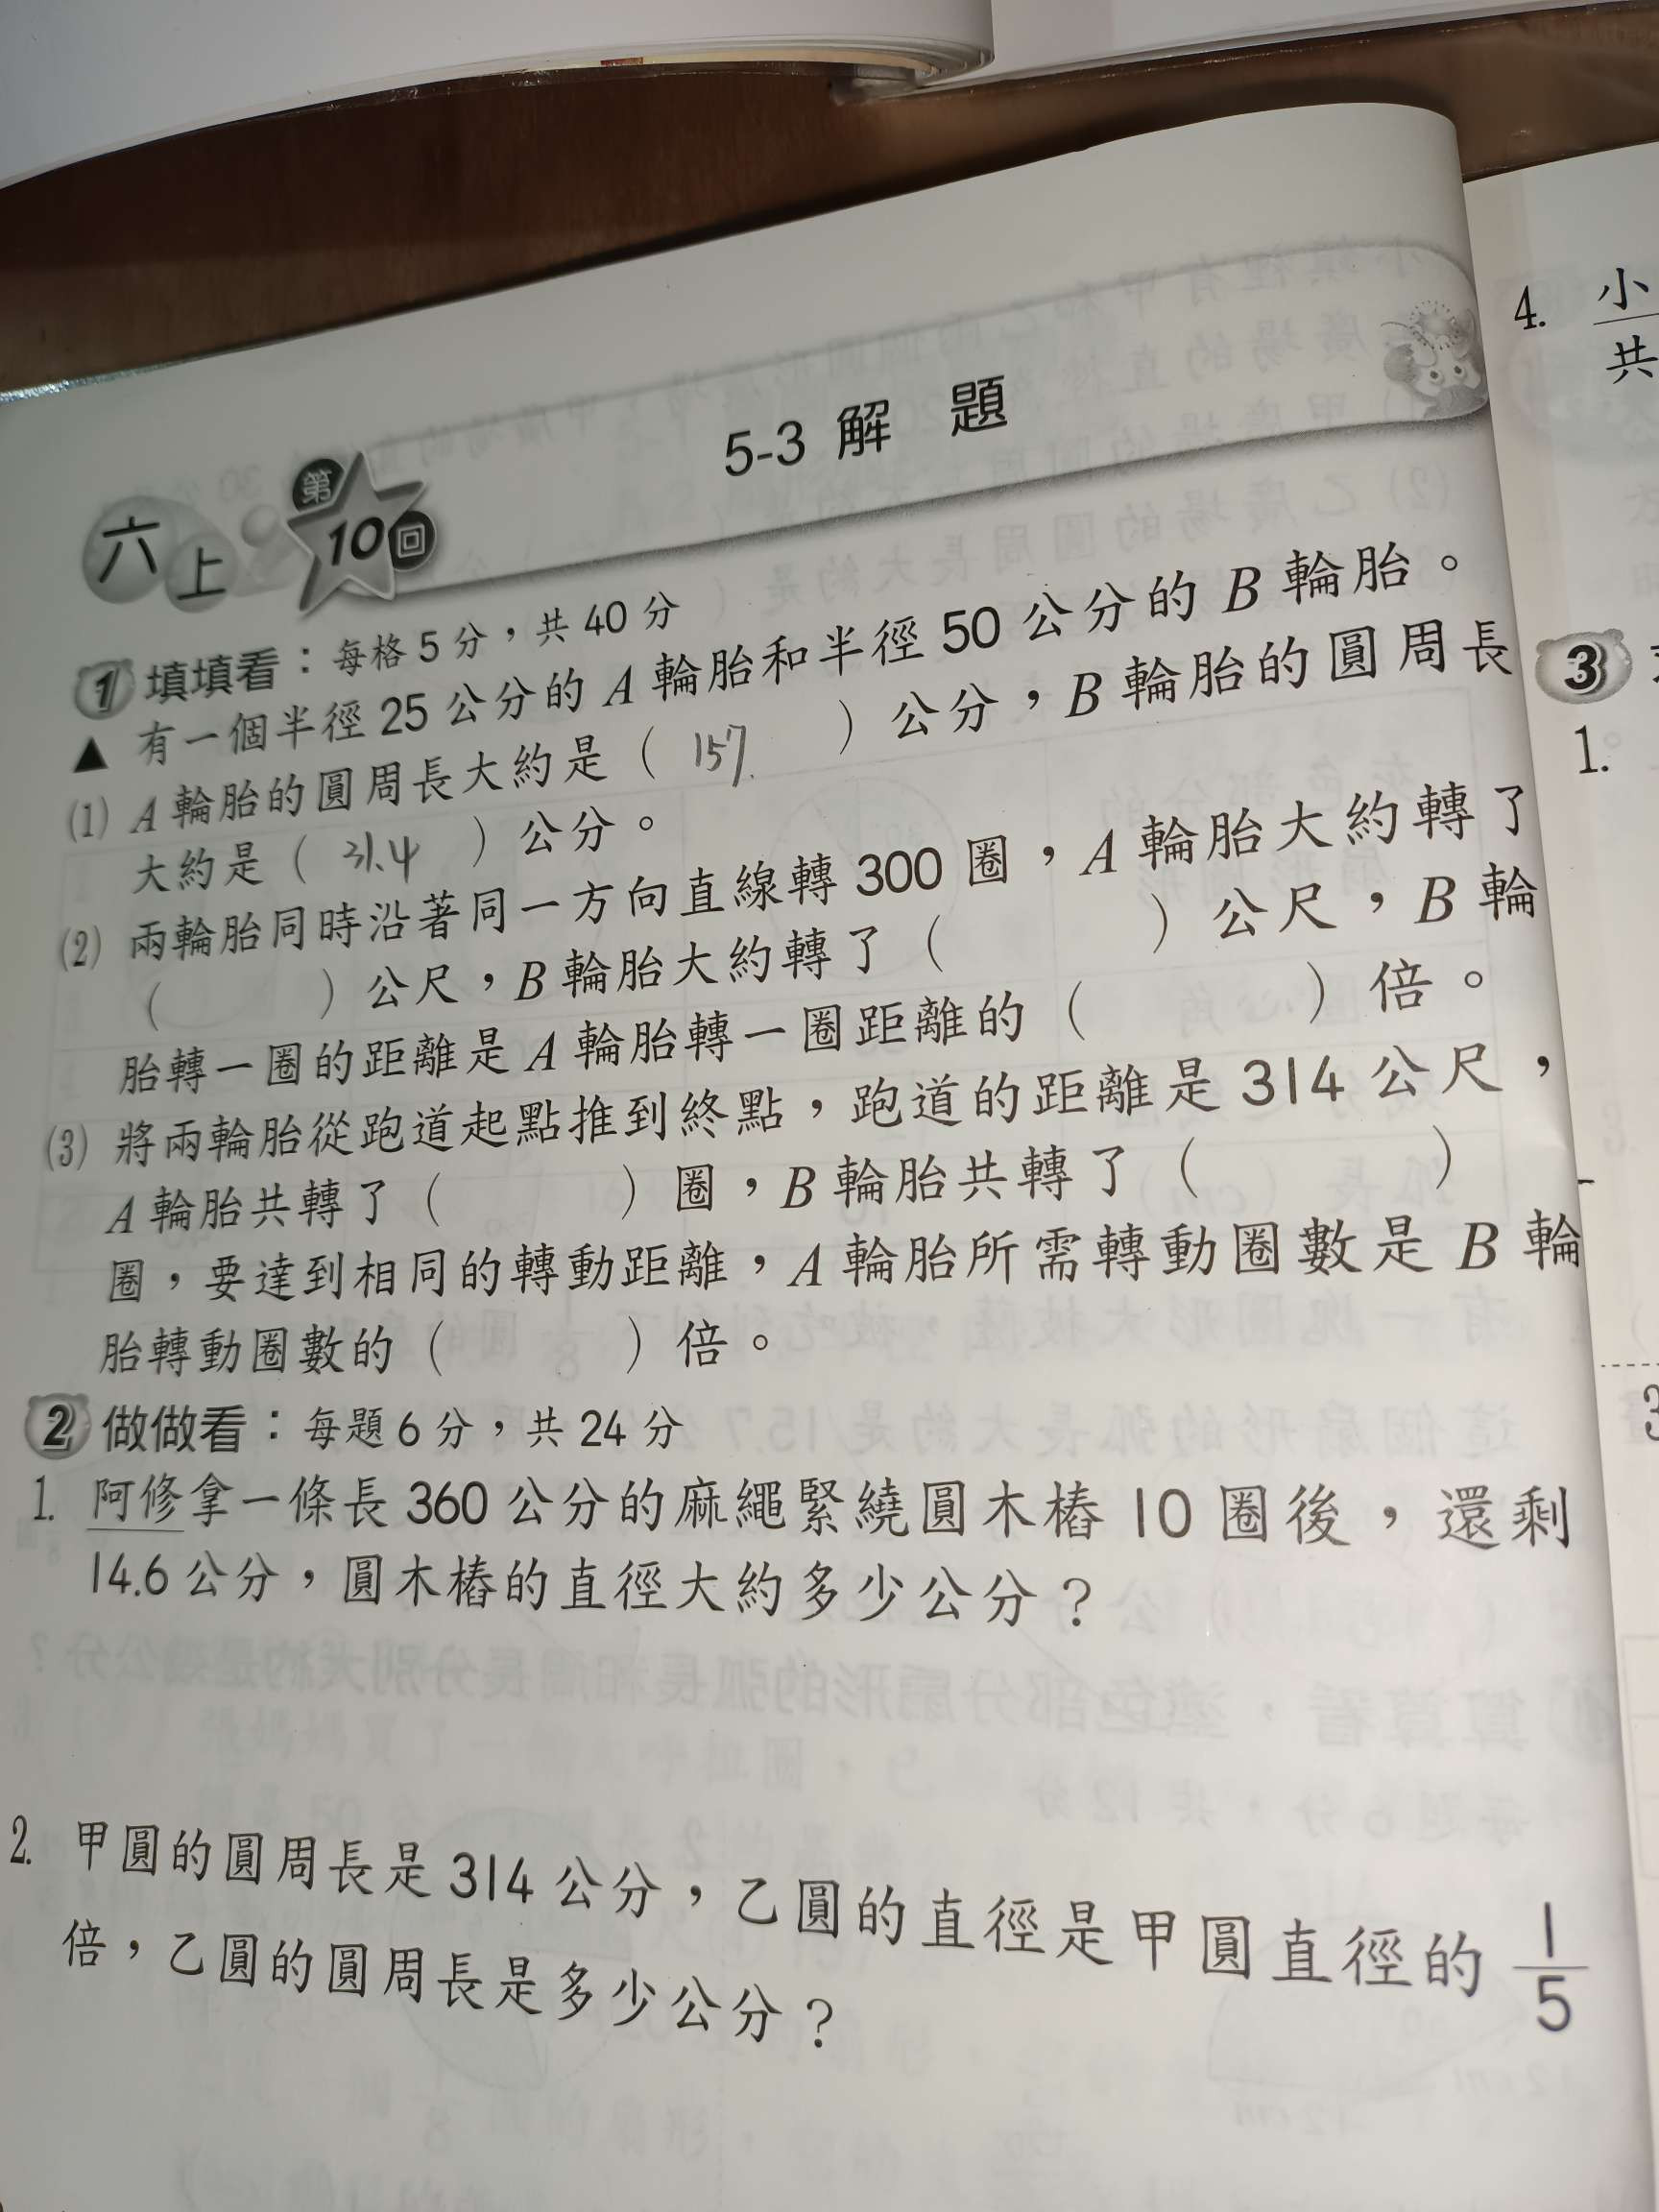 5-3 解 題
六上 第10回
1 填填看：每格5分，共40分
▲ 有一個半徑25公分的A輪胎和半徑50公分的B輪胎。
(1) A輪胎的圓周長大約是（ 157. ）公分，B輪胎的圓周長
大約是（ 31.4 ）公分。
(2) 兩輪胎同時沿著同一方向直線轉300圈，A輪胎大約轉了
（ ）公尺，B輪胎大約轉了（ ）公尺，B輪
胎轉一圈的距離是A輪胎轉一圈距離的（ ）倍。
(3) 將兩輪胎從跑道起點推到終點，跑道的距離是314公尺，
A輪胎共轉了（ ）圈，B輪胎共轉了（ ）
圈，要達到相同的轉動距離，A輪胎所需轉動圈數是B輪
胎轉動圈數的（ ）倍。
2 做做看：每題6分，共24分
1. 阿修拿一條長360公分的麻繩緊繞圓木樁10圈後，還剩
14.6公分，圓木樁的直徑大約多少公分？
2. 甲圓的圓周長是314公分，乙圓的直徑是甲圓直徑的1/5
倍，乙圓的圓周長是多少公分？
4. 小
共
3
1.
3